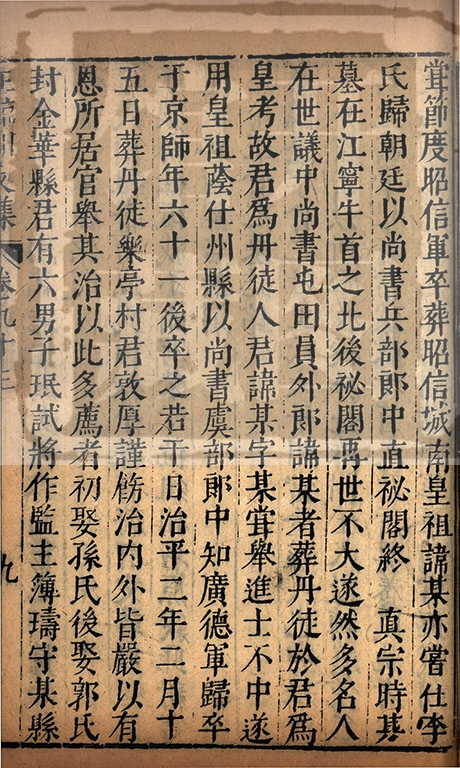 甞節度昭信軍卒葬昭信城南皇祖諱某亦嘗仕李
氏歸朝廷以尚書兵部郎中直祕閣終　真宗時其
墓在江寧牛首之北後祕閣再世不大遂然多名人
在世議中尚書屯田員外郎諱某者葬丹徒於君爲
皇考故君爲丹徒人君諱某字某甞舉進士不中遂
用皇祖蔭仕州縣以尚書虞部郎中知廣德軍歸卒
于京師年六十一後卒之若干日治平二年二月十
五日葬丹徒樂亭村君敦厚謹飭治内外皆嚴以有
恩所居官舉其治以此多薦者初娶孫氏後娶郭氏
封金華縣君有六男子珉試將作監主簿璹守某縣
文集　卷九十三　九